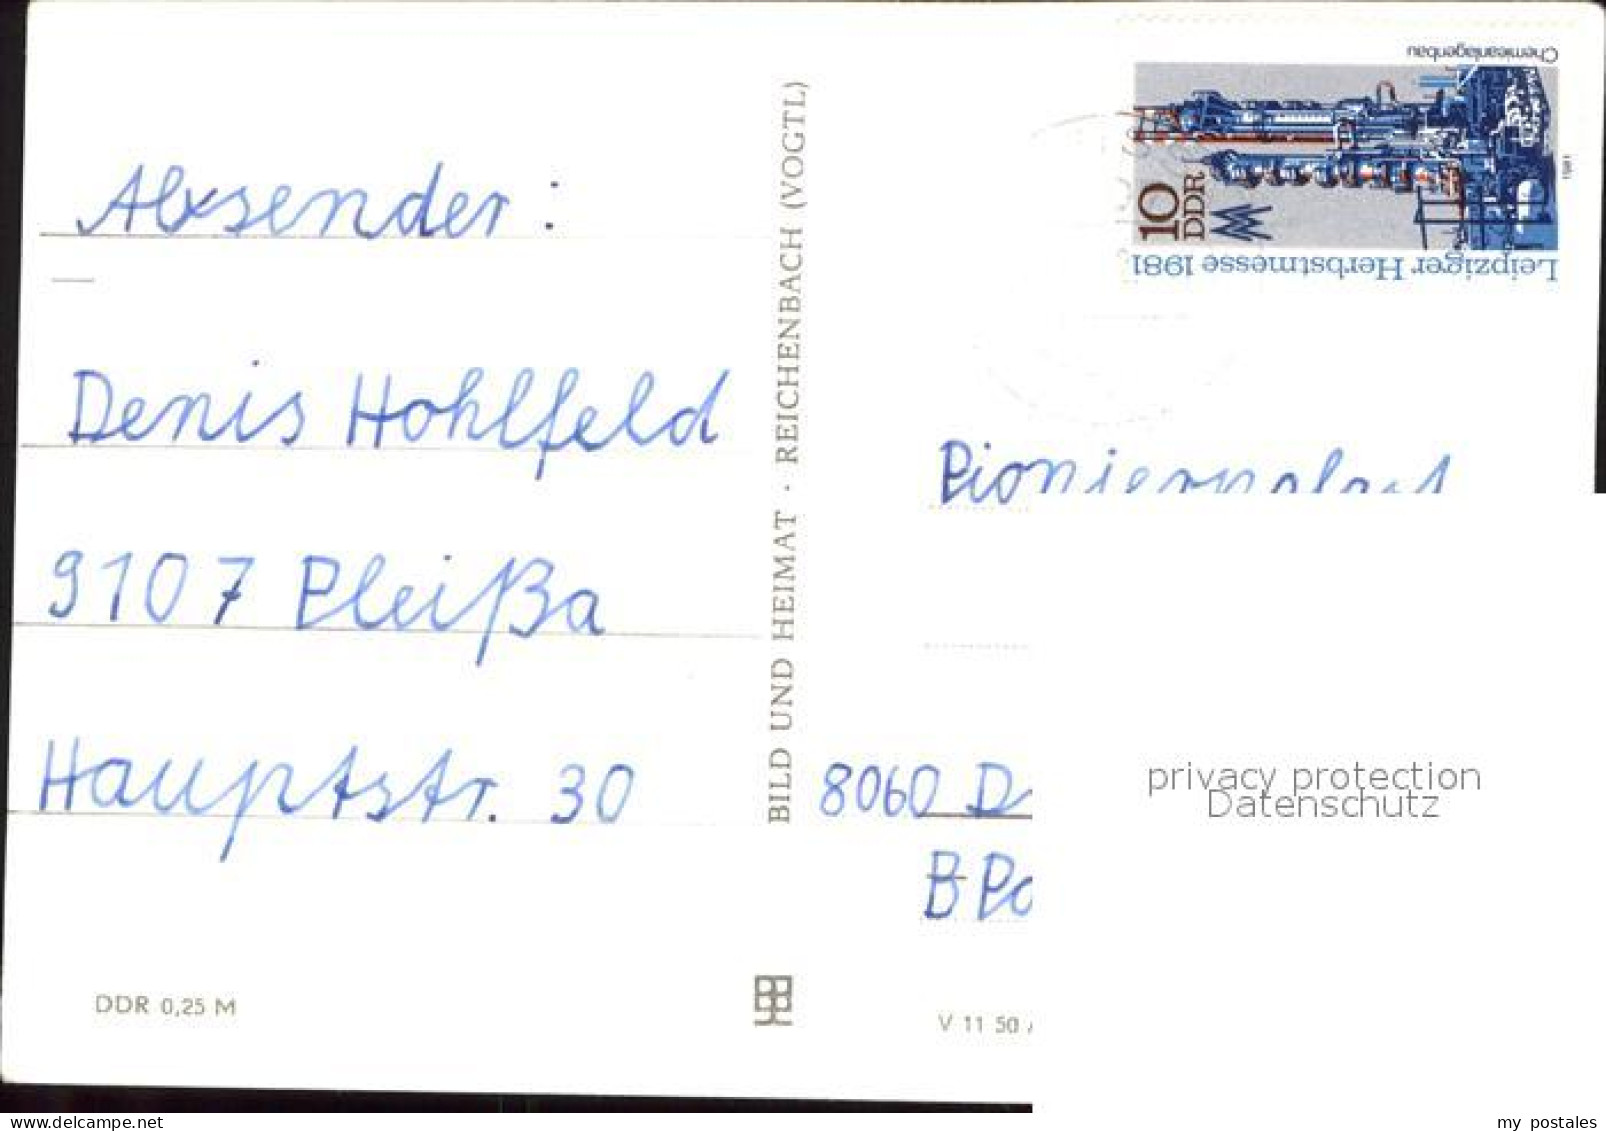 Absender:
Denis Hohlfeld
9107 Pleißa
Hauptstr. 30
DDR 0,25 M
BILD UND HEIMAT · REICHENBACH (VOGTL)
Chemieanlagenbau
10
DDR
1981
Leipziger Herbstmesse 1981
Pionierpalast
8060 D
B Po
V 11 50
privacy protection
Datenschutz
my postales